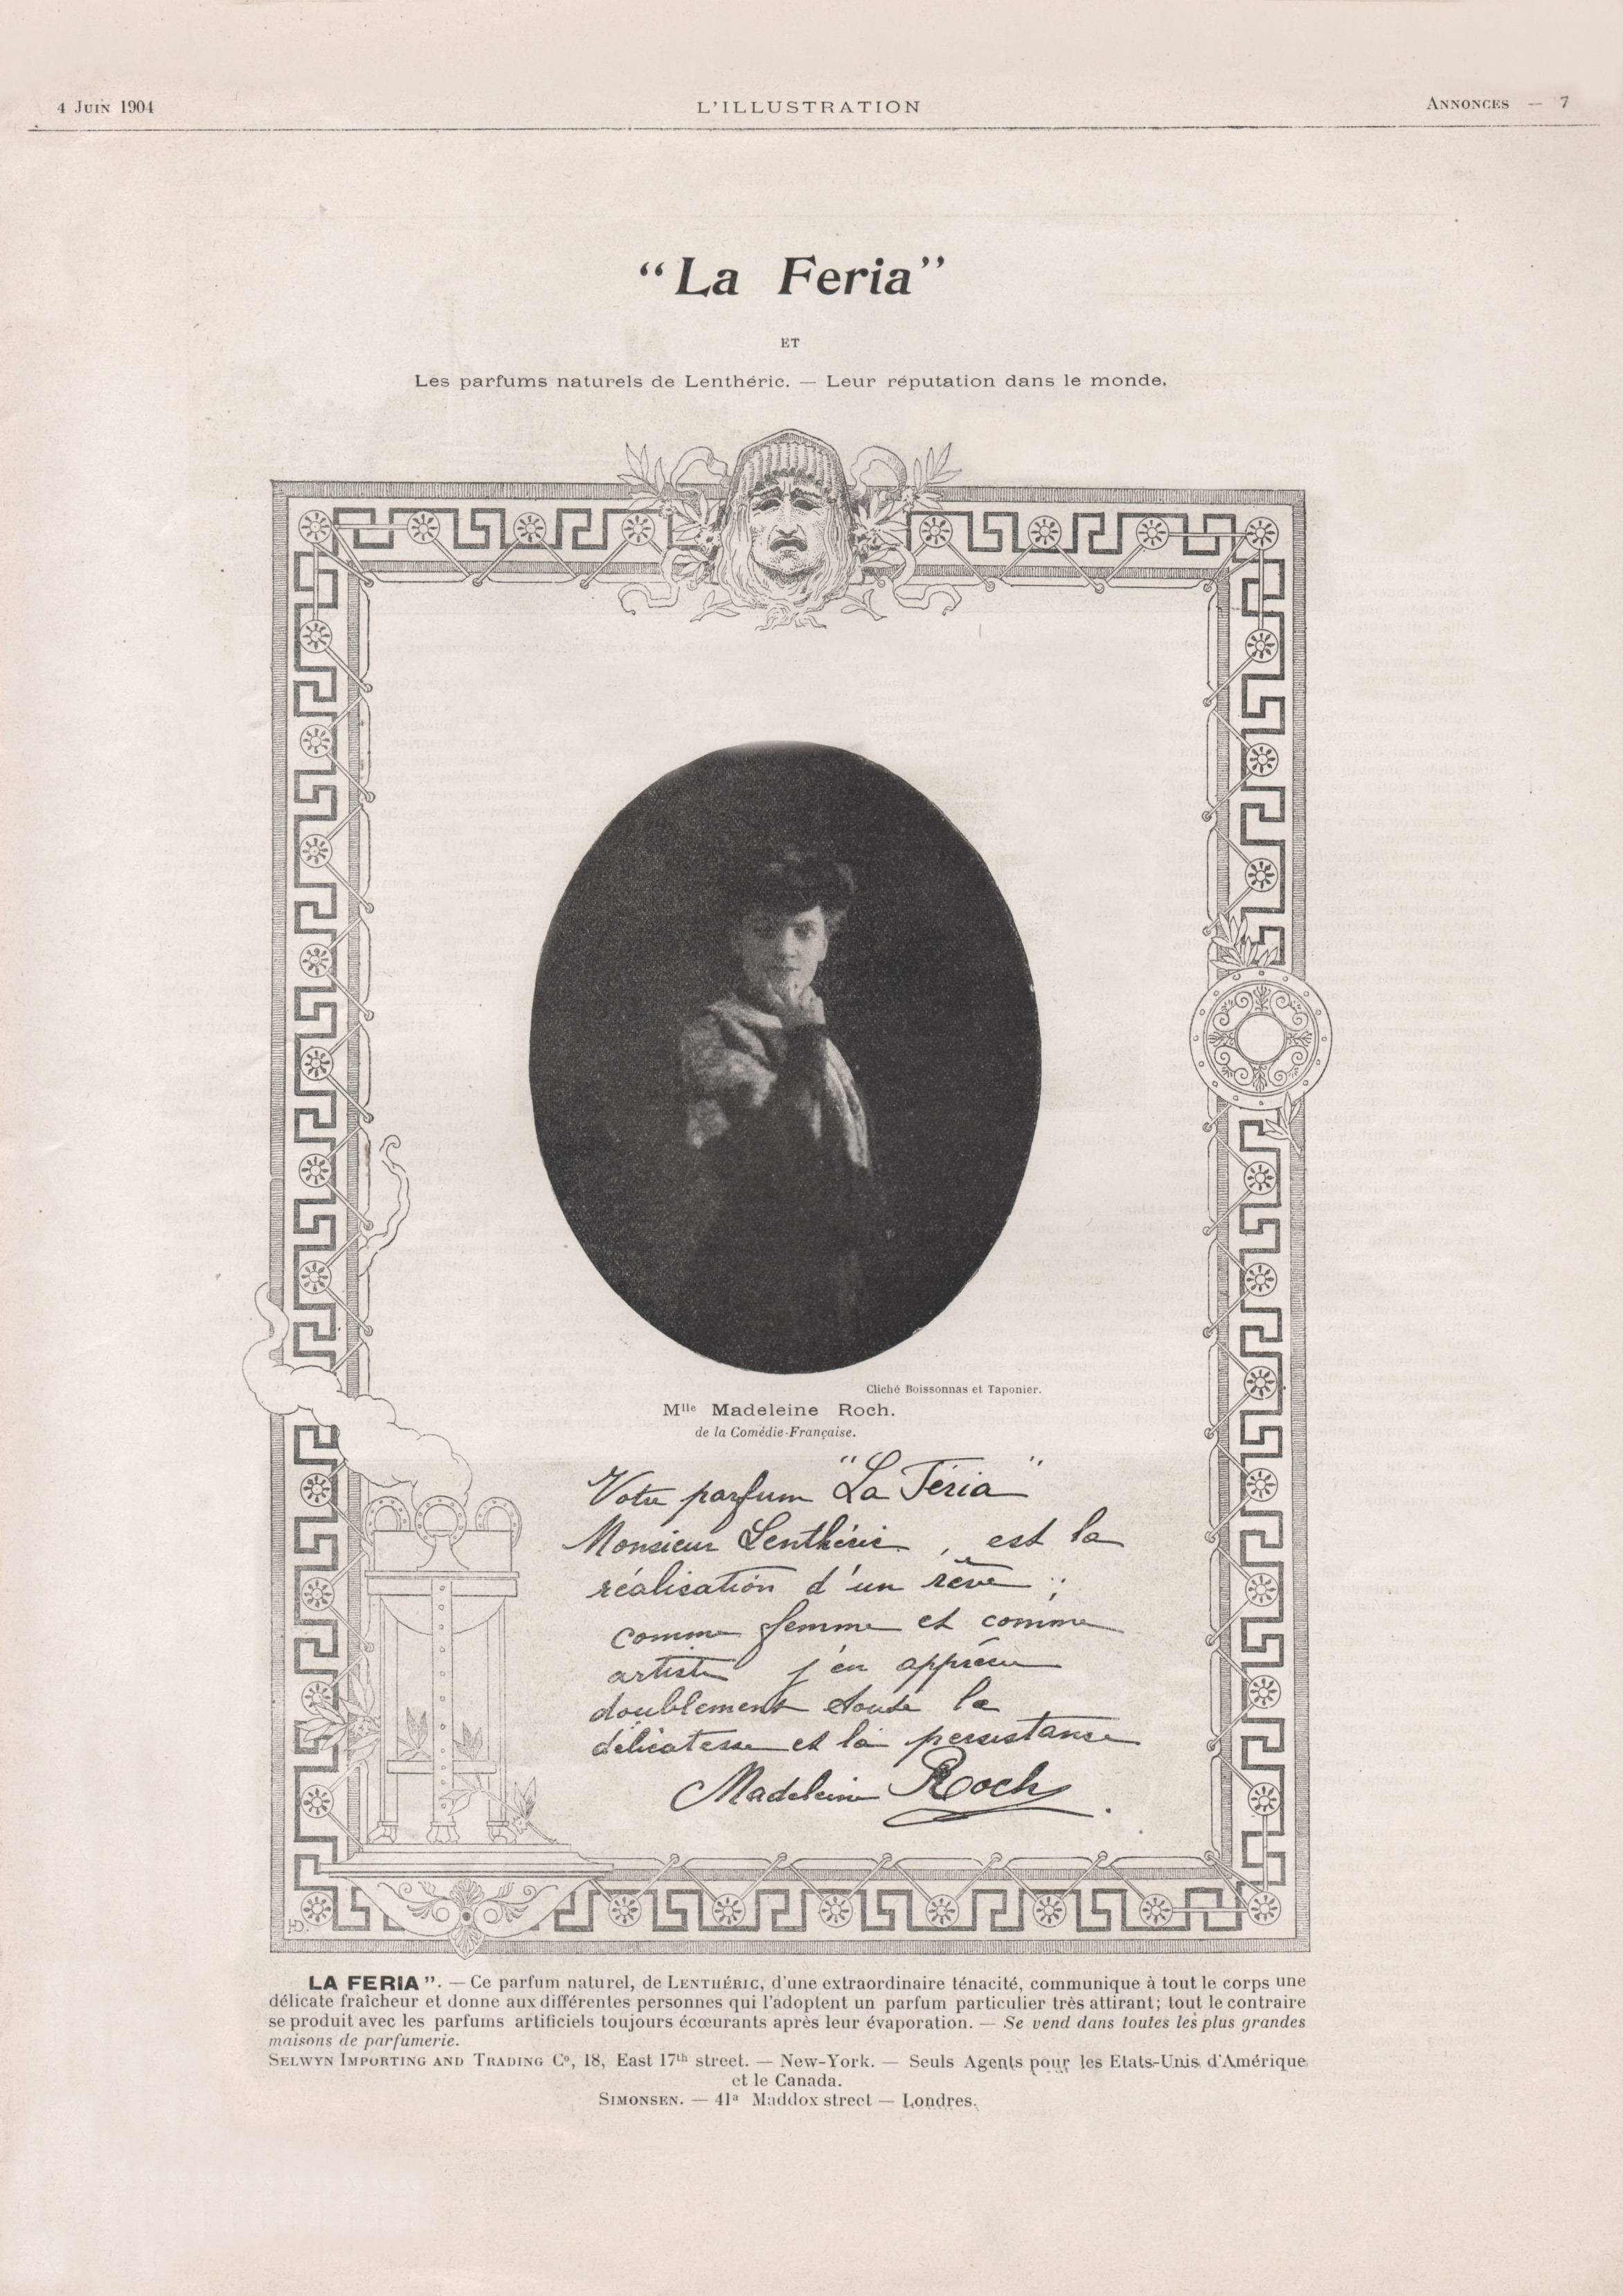 4 Juin 1904 L'ILLUSTRATION Annonces — 7
“La Feria”
ET
Les parfums naturels de Lenthéric. — Leur réputation dans le monde.
Cliché Boissonnas et Taponier.
Mlle Madeleine Roch.
de la Comédie-Française.
Votre parfum "La Féria"
Monsieur Lenthéric, est la
réalisation d'un rêve ;
comme femme et comme
artiste j'en apprécie
doublement toute la
délicatesse et la persistance
Madeleine Roch.
LA FERIA”. — Ce parfum naturel, de Lenthéric, d'une extraordinaire ténacité, communique à tout le corps une
délicate fraîcheur et donne aux différentes personnes qui l'adoptent un parfum particulier très attirant; tout le contraire
se produit avec les parfums artificiels toujours écœurants après leur évaporation. — Se vend dans toutes les plus grandes
maisons de parfumerie.
Selwyn Importing and Trading Co, 18, East 17th street. — New-York. — Seuls Agents pour les Etats-Unis d'Amérique
et le Canada.
Simonsen. — 41a Maddox street — Londres.